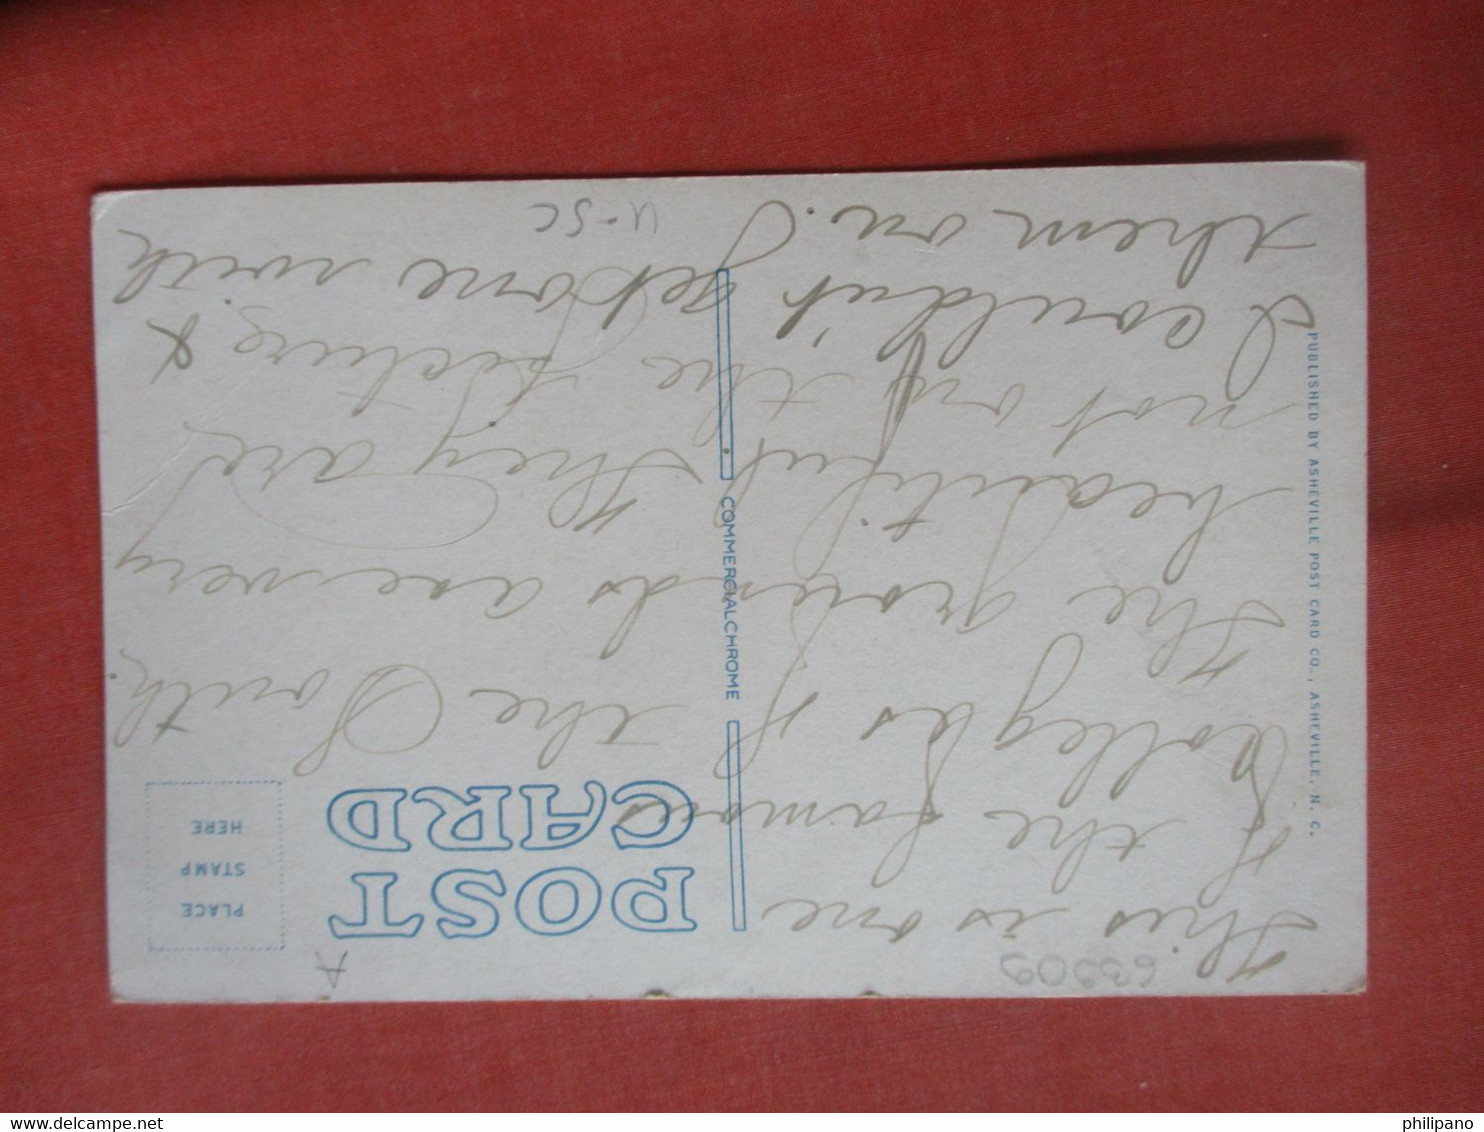 POST
CARD
PLACE
STAMP
HERE
A
This is one
of the famous
Colleges of the South.
The grounds are very
beautiful They are
not on the picture, &
I couldn't get one with
them on.
U-SC
COMMERCIALCHROME
PUBLISHED BY ASHEVILLE POST CARD CO., ASHEVILLE, N. C.
https://www.delcampe.net
philipano